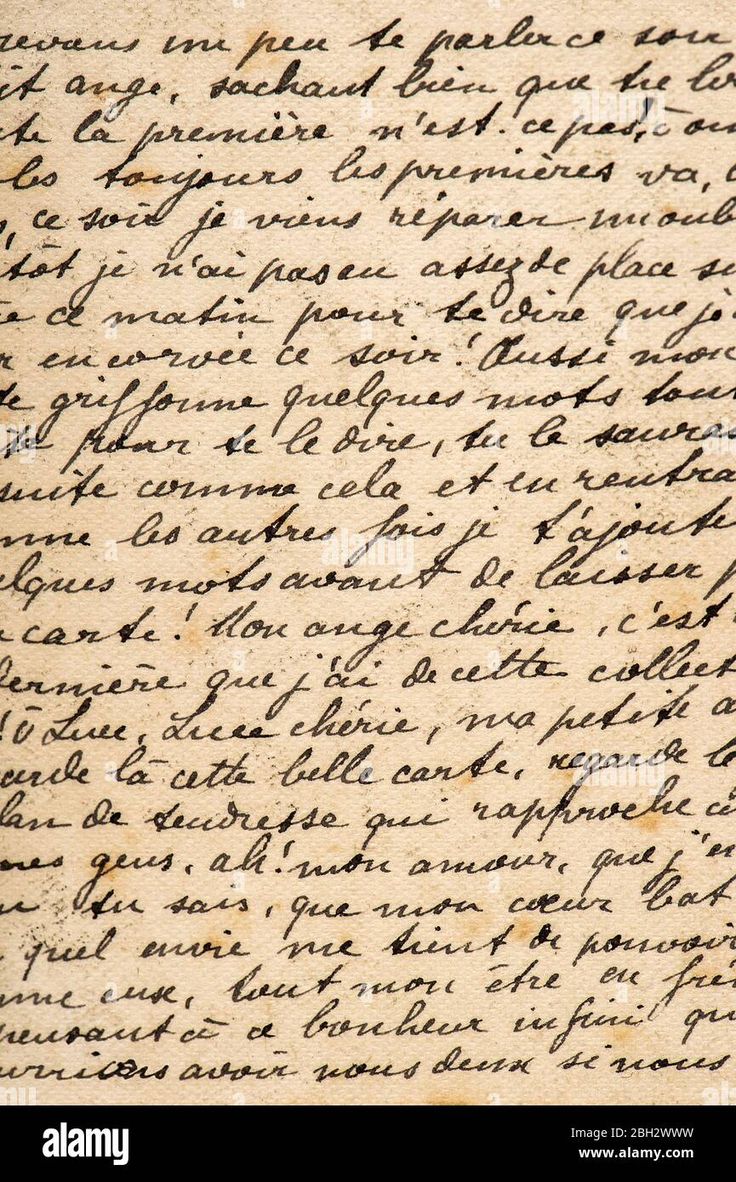 devans un peu te parler ce soir
it ange, sachant bien que tu
te la première n'est-ce pas, ô
les toujours les premières va,
, ce soir je viens réparer un oub
tôt je n'ai pas eu assez de place su
ce matin pour te dire que j'
r en corvée ce soir! Aussi mon
te griffonne quelques mots tout
te pour te le dire, tu le sauras
suite comme cela et en rentra
mme les autres fois je t'ajoute
elques mots avant de laisser p
carte! Mon ange chérie, c'est
dernière que j'ai de cette collect
! ô Luce, Luce chérie, ma petite a
arde là cette belle carte, regarde le
lan de tendresse qui rapproche
nes gens, ah! mon amour, que j'en
tu sais, que mon cœur bat
quel envie me tient de pouvoir
mme eux, tout mon être en fré
pensant à ce bonheur infini qu
urrions avoir nous deux si nous
alamy
Image ID: 2BH2WWW
www.alamy.com